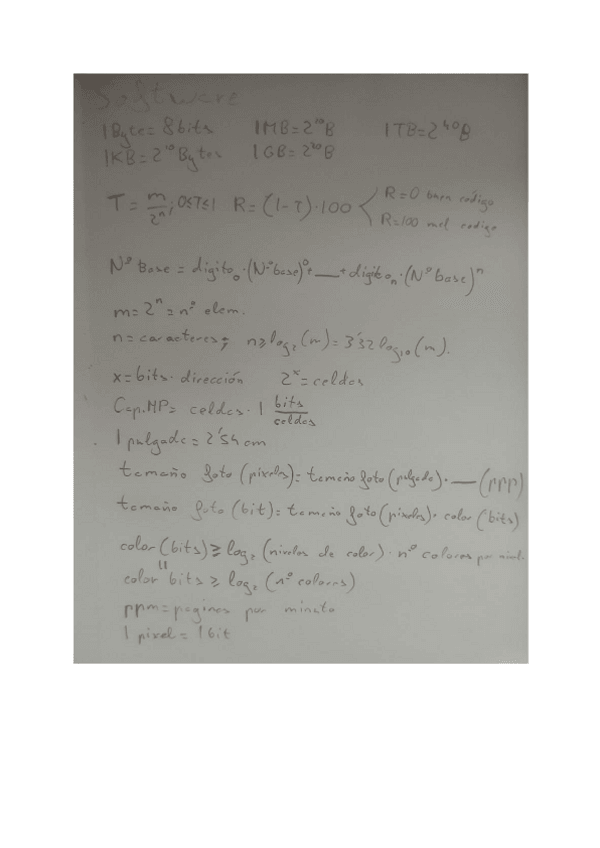 Software
1Byte = 8bits 1MB = 2²⁰B 1TB = 2⁴⁰B
1KB = 2¹⁰Bytes 1GB = 2³⁰B
T = m/2ⁿ; 0≤T≤1 R = (1-T)·100 < R=0 buen código
R=100 mal código
Nº Base = digito₀·(Nº base)⁰+ __ + digitoₙ·(Nº base)ⁿ
m = 2ⁿ = nº elem.
n = caracteres; n ≥ log₂(m) = 3'32 log₁₀(m).
x = bits · dirección 2ˣ = celdas
Cap. MP = celdas · 1 bits/celdas
1 pulgada = 2'54 cm
tamaño foto (pixeles) = tamaño foto (pulgada) · __ (ppp)
tamaño foto (bit) = tamaño foto (pixeles) · color (bits)
color (bits) ≥ log₂ (niveles de color) · nº colores por nivel
=
color bits ≥ log₂ (nº colores)
ppm = paginas por minuto
1 pixel = 1bit